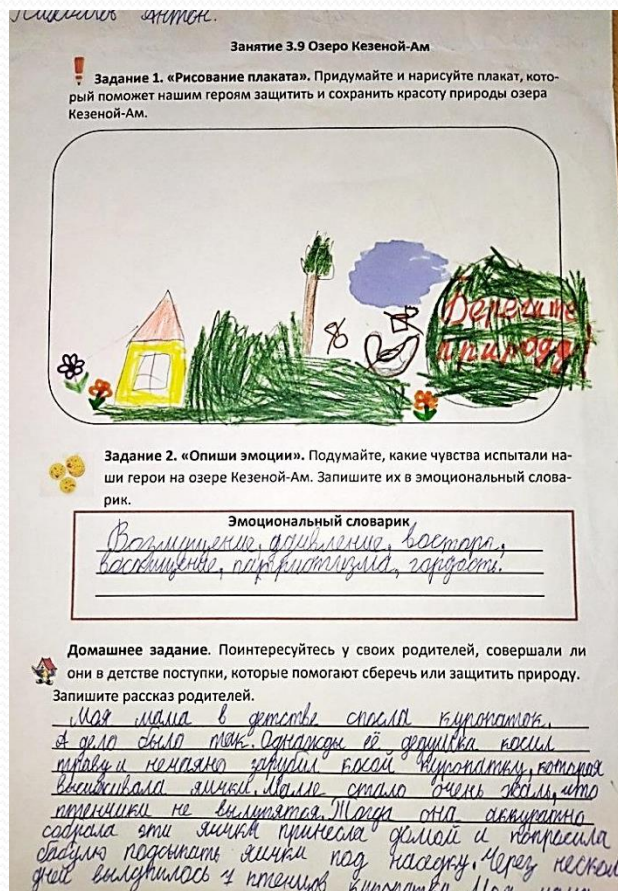 Антон.
Занятие 3.9 Озеро Кезеной-Ам
Задание 1. «Рисование плаката». Придумайте и нарисуйте плакат, кото-
рый поможет нашим героям защитить и сохранить красоту природы озера
Кезеной-Ам.
Берегите
природу!
Задание 2. «Опиши эмоции». Подумайте, какие чувства испытали на-
ши герои на озере Кезеной-Ам. Запишите их в эмоциональный слова-
рик.
Эмоциональный словарик
Возмущение, удивление, восторг,
восхищение, патриотизма, гордости.
Домашнее задание. Поинтересуйтесь у своих родителей, совершали ли
они в детстве поступки, которые помогают сберечь или защитить природу.
Запишите рассказ родителей.
Моя мама в детстве спасла куропаток.
А дело было так. Однажды её дедушка косил
траву и нечаяно зарубил косой куропатку, которая
высиживала яички. Маме стало очень жаль, что
птенчики не вылупятся. Тогда она аккуратно
собрала эти яички принесла домой и попросила
бабулю подсыпать яички под наседку. Через несколь
дней вылупилось 7 птенцов